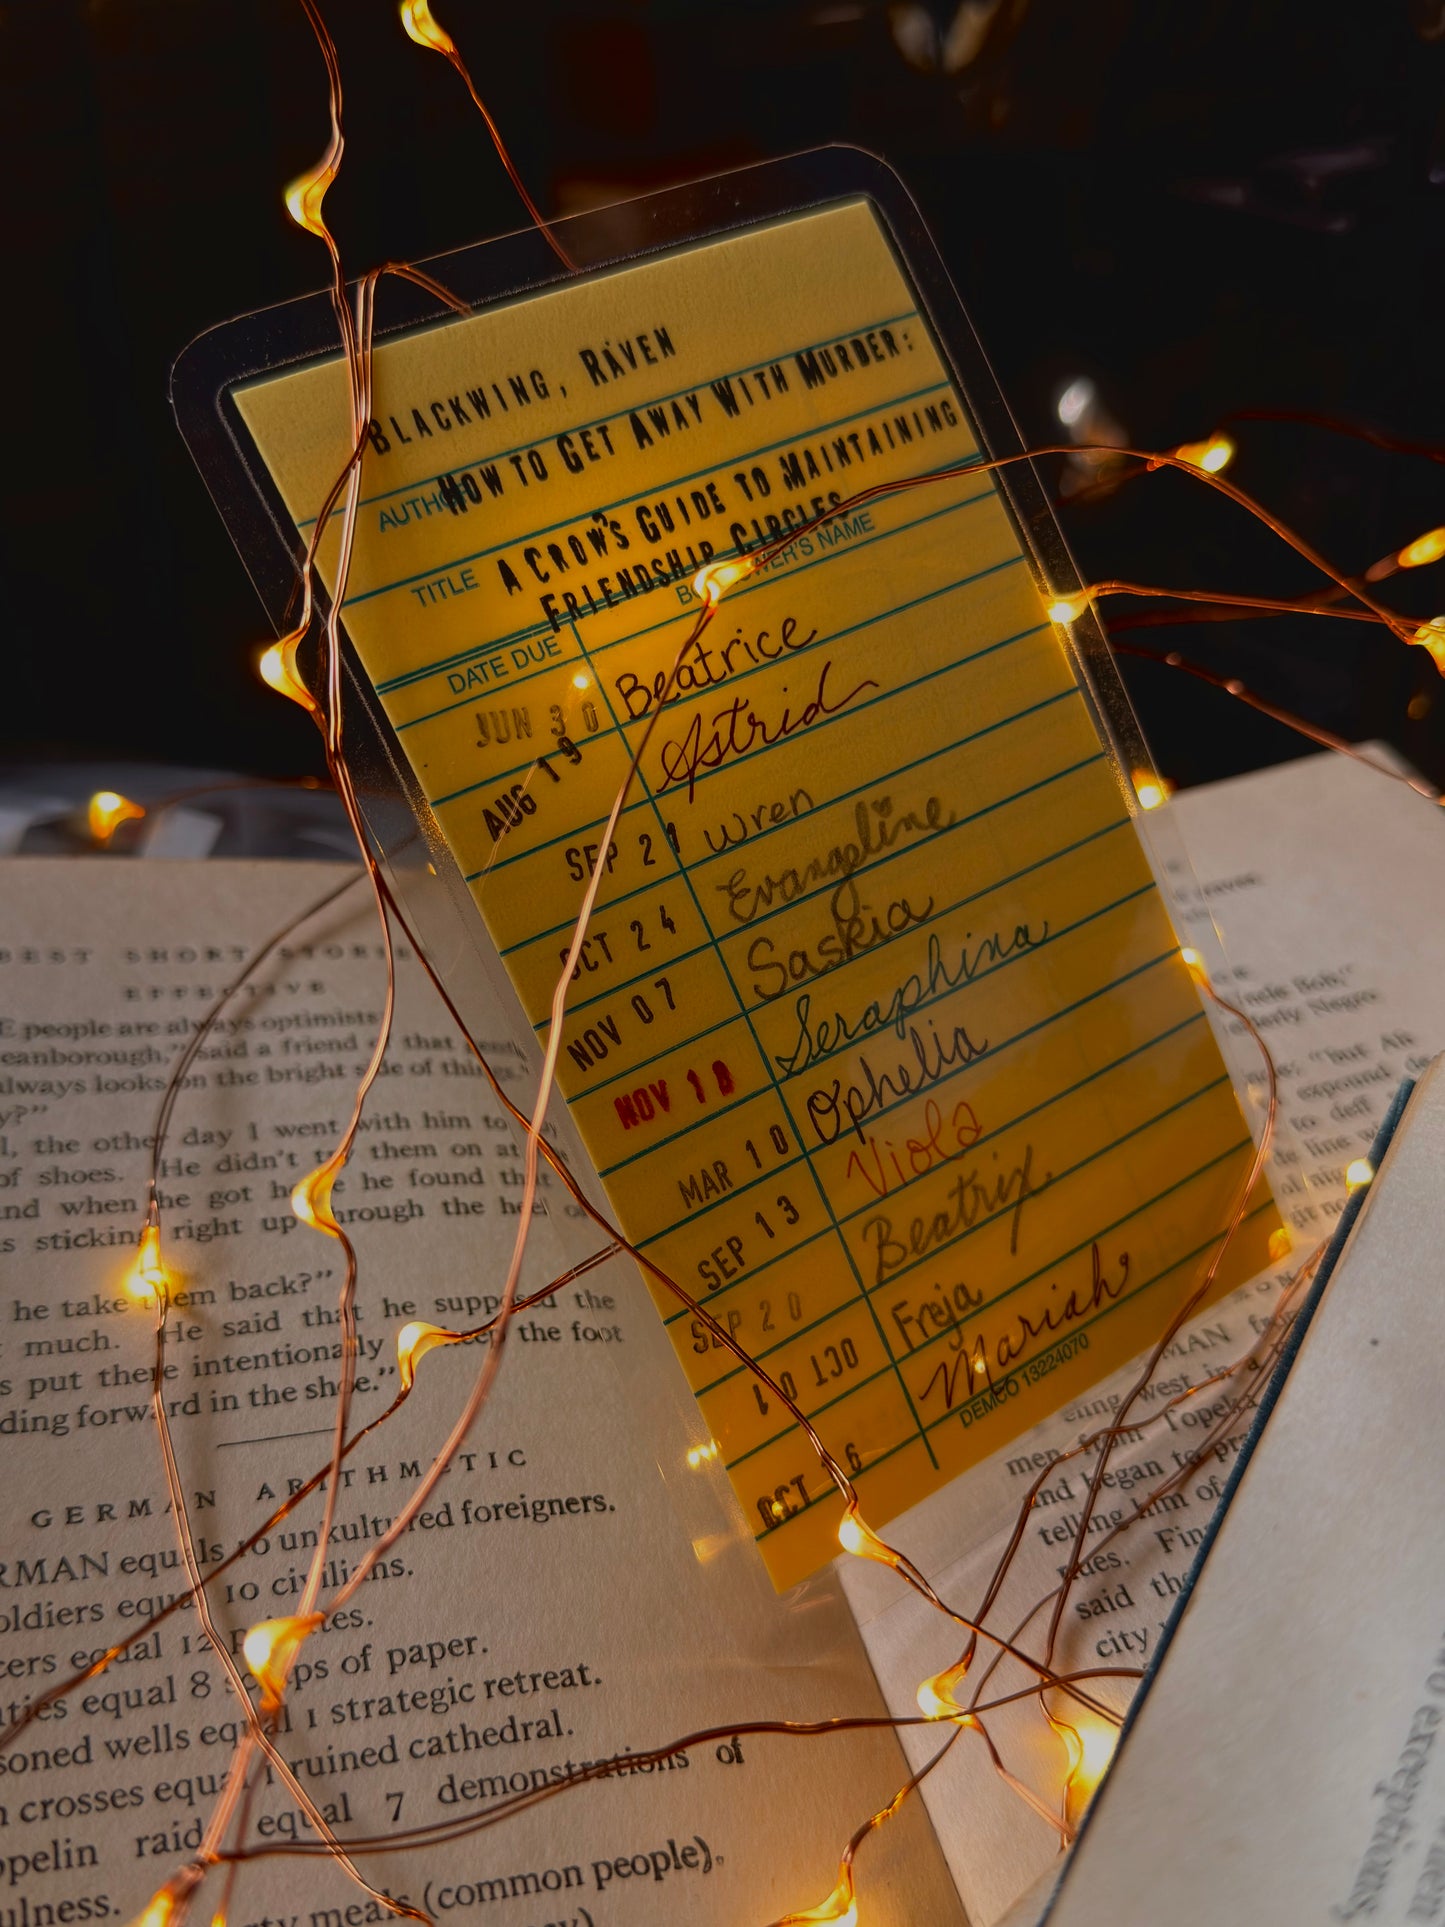 BLACKWING, RAVEN
AUTHO
HOW TO GET AWAY WITH MURDER:
TITLE A CROW'S GUIDE TO MAINTAINING
FRIENDSHIP CIRCLES
DATE DUE BORROWER'S NAME
JUN 30 Beatrice
AUG 19 Astrid
SEP 21 Wren
OCT 24 Evangeline
NOV 07 Saskia
NOV 18 Seraphina
MAR 10 Ophelia
SEP 13 Viola
SEP 20 Beatrix
OCT 01 Freja
OCT 16 Mariah
DEMCO 13224070
BEST SHORT STORIE
EFFECTIVE
E people are always optimists
eanborough," said a friend of that
always looks on the bright side of things."
y?"
l, the other day I went with him to
of shoes. He didn't try them on at
nd when he got home he found that
s sticking right up through the heel of
he take them back?"
much. He said that he supposed the
s put there intentionally to keep the foot
ding forward in the shoe."
GERMAN ARITHMETIC
RMAN equals 10 unkultured foreigners.
oldiers equal 10 civilians.
cers equal 12 privates.
ties equal 8 scraps of paper.
soned wells equal 1 strategic retreat.
n crosses equal 1 ruined cathedral.
ppelin raid equal 7 demonstrations of
ulness.
ty meals (common people).
ncle Bob,"
elderly Negro
"but Ah
expound de
to deff
de line
MAN from
eling west in a
men from Topeka
and began to
telling him of
said the
city
exceptions